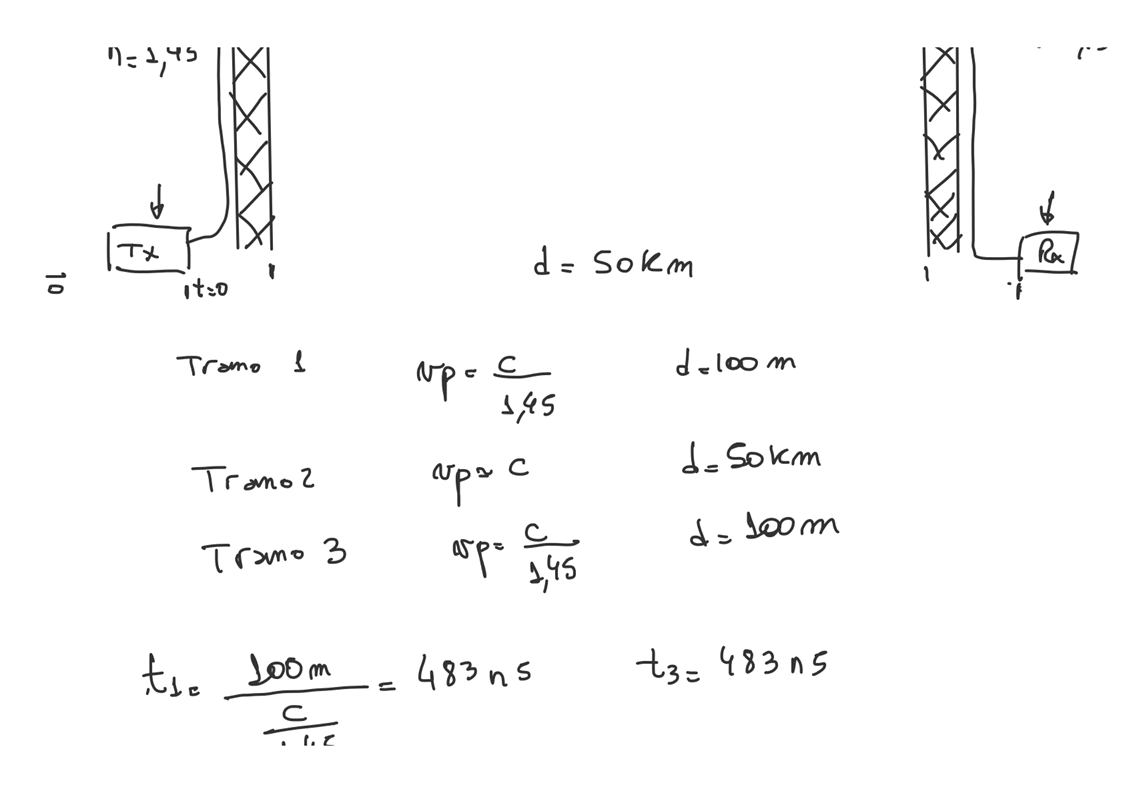 n = 1,45
Tx
Rx
t=0
d = 50 km
10
Tramo 1 vp = c/1,45 d = 100 m
Tramo 2 vp ≈ c d = 50 km
Tramo 3 vp = c/1,45 d = 100 m
t1 = 100 m/(c/1,45) = 483 ns t3 = 483 ns